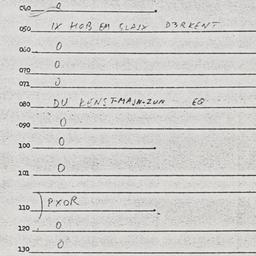 040 0
050 IX HOB EM GLAIX D3RKENT
060 0
070 0
071 0
080 DU KENST-MAJN-ZUN EQ
090 0
100 0
101 0
110 PXOR
120 0
130 0